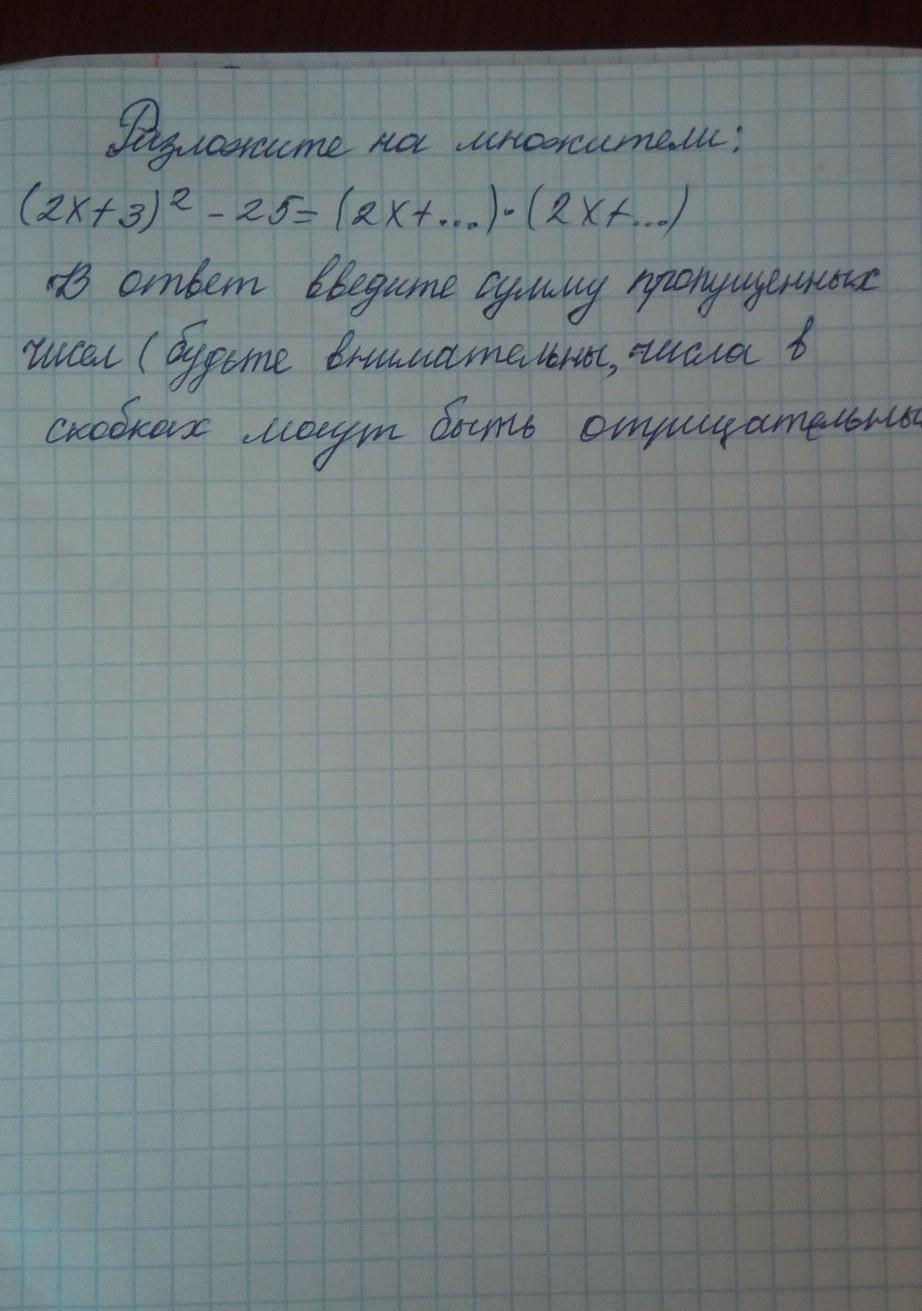 Разложите на множители:
(2x+3)² - 25 = (2x+...)·(2x+...)
В ответ введите сумму пропущенных
чисел (будьте внимательны, числа в
скобках могут быть отрицательны